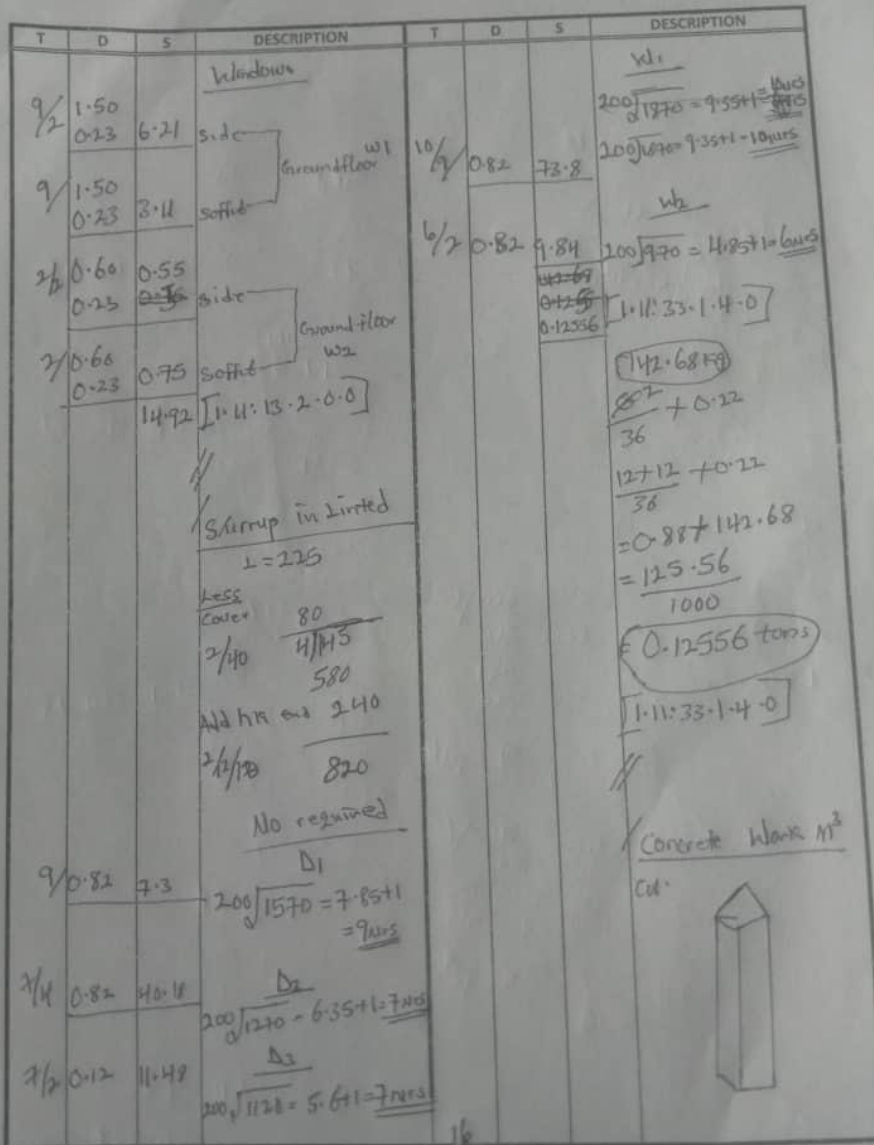 T D S DESCRIPTION
Windows
9/2 1.50
0.23 6.21 side
Groundfloor W1
9/ 1.50
0.23 3.11 soffit
2/2 0.60 0.55
0.23 side
Ground floor
W2
2/ 0.60 0.75 soffit
0.23
14.92 [1.11:13.2.0.0]
Stirrup in Linted
L=225
Less
Cover 80
2/40 4/145
580
Add hk end 240
820
No required
D1
9/ 0.82 7.3
200√1570 = 7.85+1
= 9nrs
D2
7/4 0.82 40.18
200√1270 - 6.35+1=7nrs
D3
7/2 0.12 11.48
200√1128 = 5.6+1=7nrs
T D S DESCRIPTION
W1
200√1870 = 9.35+1=10nrs
10/9/ 0.82 73.8 200√1870= 9.35+1-10nrs
W2
6/2 0.82 9.84 200√970 = 4.85+1=6nrs
0.12556 [1.11:33.1.4.0]
142.68kg
/36 + 0.22
12+12/36 +0.22
=0.88+142.68
= 125.56
1000
= 0.12556 tons
[1.11:33.1.4.0]
Concrete Work M³
Col.
16